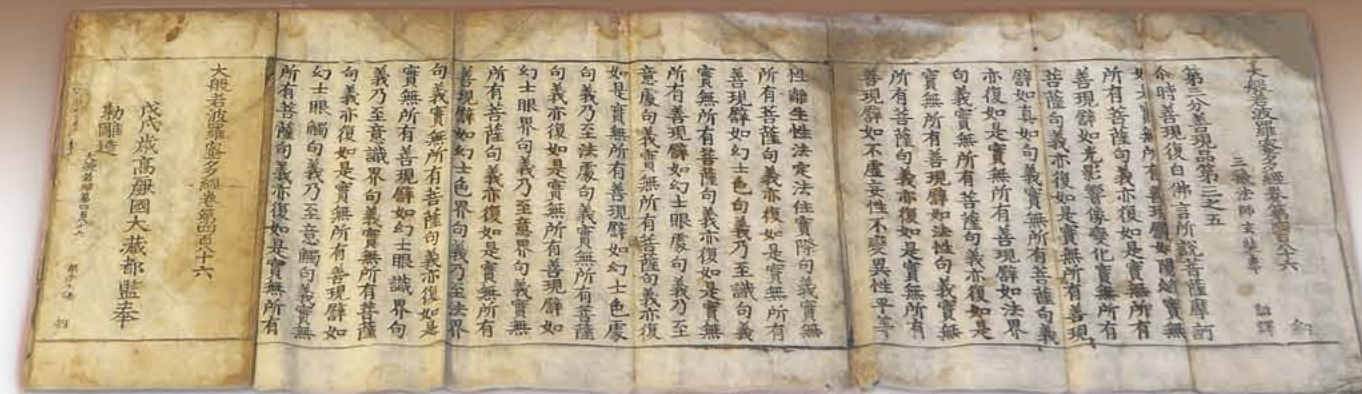 大般若波羅蜜多經卷第四百八十六
三藏法師玄奘奉 詔譯
第三分善現品第三之五
尒時善現復白佛言所說菩薩摩訶
實無所有善現譬如陽焰實無
所有菩薩句義亦復如是實無所有
善現譬如光影響像變化實無所有
菩薩句義亦復如是實無所有善現
譬如真如句義實無所有菩薩句義
亦復如是實無所有善現譬如法界
句義實無所有菩薩句義亦復如是
實無所有善現譬如法性句義實無
所有菩薩句義亦復如是實無所有
善現譬如不虛妄性不變異性平等
性離生性法定法住實際句義實無
所有菩薩句義亦復如是實無所有
善現譬如幻士色句義乃至識句義
實無所有菩薩句義亦復如是實無
所有善現譬如幻士眼處句義乃至
意處句義實無所有菩薩句義亦復
如是實無所有善現譬如幻士色處
句義乃至法處句義實無所有菩薩
句義亦復如是實無所有善現譬如
幻士眼界句義乃至意界句義實無
所有菩薩句義亦復如是實無所有
善現譬如幻士色界句義乃至法界
句義實無所有菩薩句義亦復如是
實無所有善現譬如幻士眼識界句
義乃至意識界句義實無所有菩薩
句義亦復如是實無所有善現譬如
幻士眼觸句義乃至意觸句義實無
所有菩薩句義亦復如是實無所有
大般若波羅蜜多經卷第四百八十六
戊戌歲高麗國大藏都監奉
勅雕造